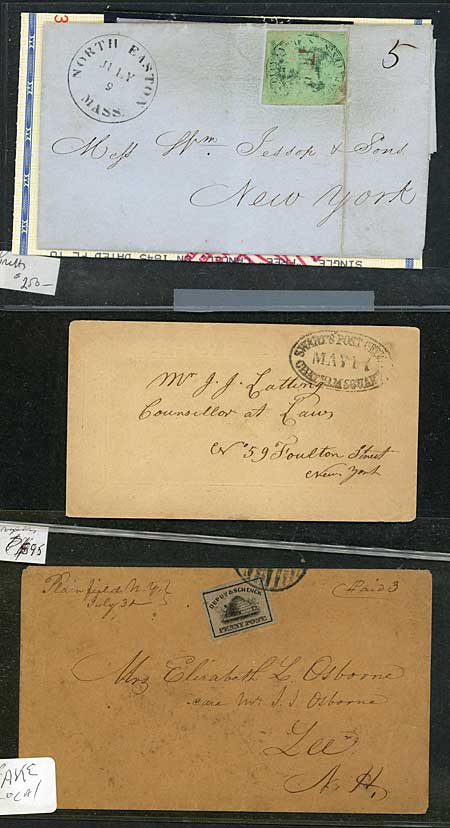 NORTH EASTON
JULY
9
MASS.
5
Mess Wm. Jessop & Sons
New York
SINGLE
DATED
TO
250-
SWARTS POST OFFICE
MAY 17
CHATHAM SQUARE
Mr J. J. Latting
Counsellor at Law
No 59 Foulton Street
New York
595
Plainfield N.Y.
July 31
Paid 3
DUPUY & SCHENCK
PENNY POST
Mrs Elizabeth L. Osborne
care Mr. J. J. Osborne
Lee
N. H.
FAKE
LOCAL